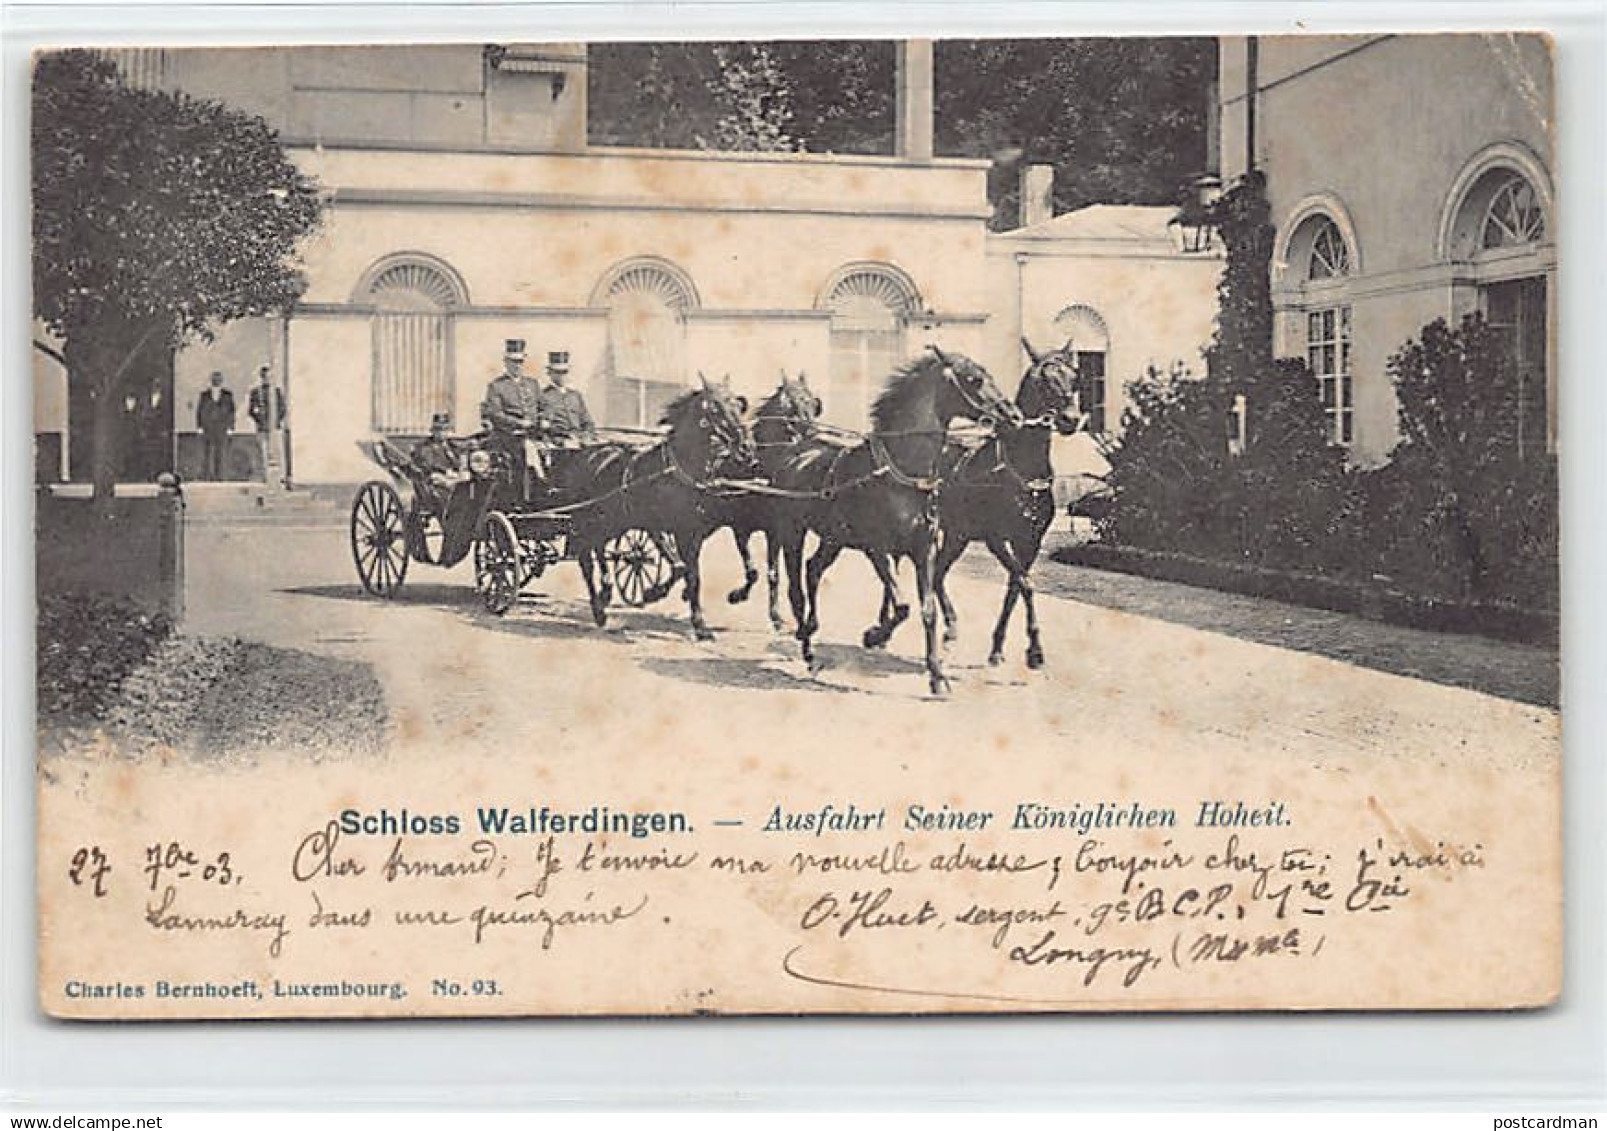 Schloss Walferdingen. — Ausfahrt Seiner Königlichen Hoheit.
27 7bre 03. Cher Armand; Je t'envoie ma nouvelle adresse; bonjour chez toi; j'irai à
Lanneray dans une quinzaine.
O. Huet, sergent, 9e B.C.P., 1re Cie
Longwy, (M
Charles Bernhoeft, Luxembourg. No. 93.
delcampe.net
postcardman